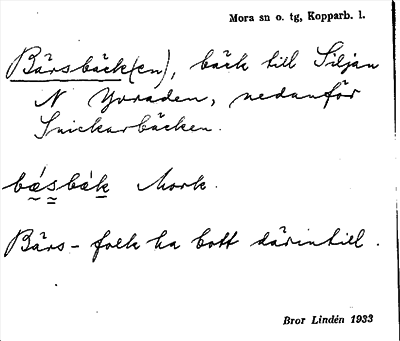 Mora sn o. tg, Kopparb. l.
Bårsbäck(en), bäck till Siljan
N Yvraden, nedanför
Snickarbäcken.
bǽsbák Mork.
Bårs-folk ha bott därintill.
Bror Lindén 1933